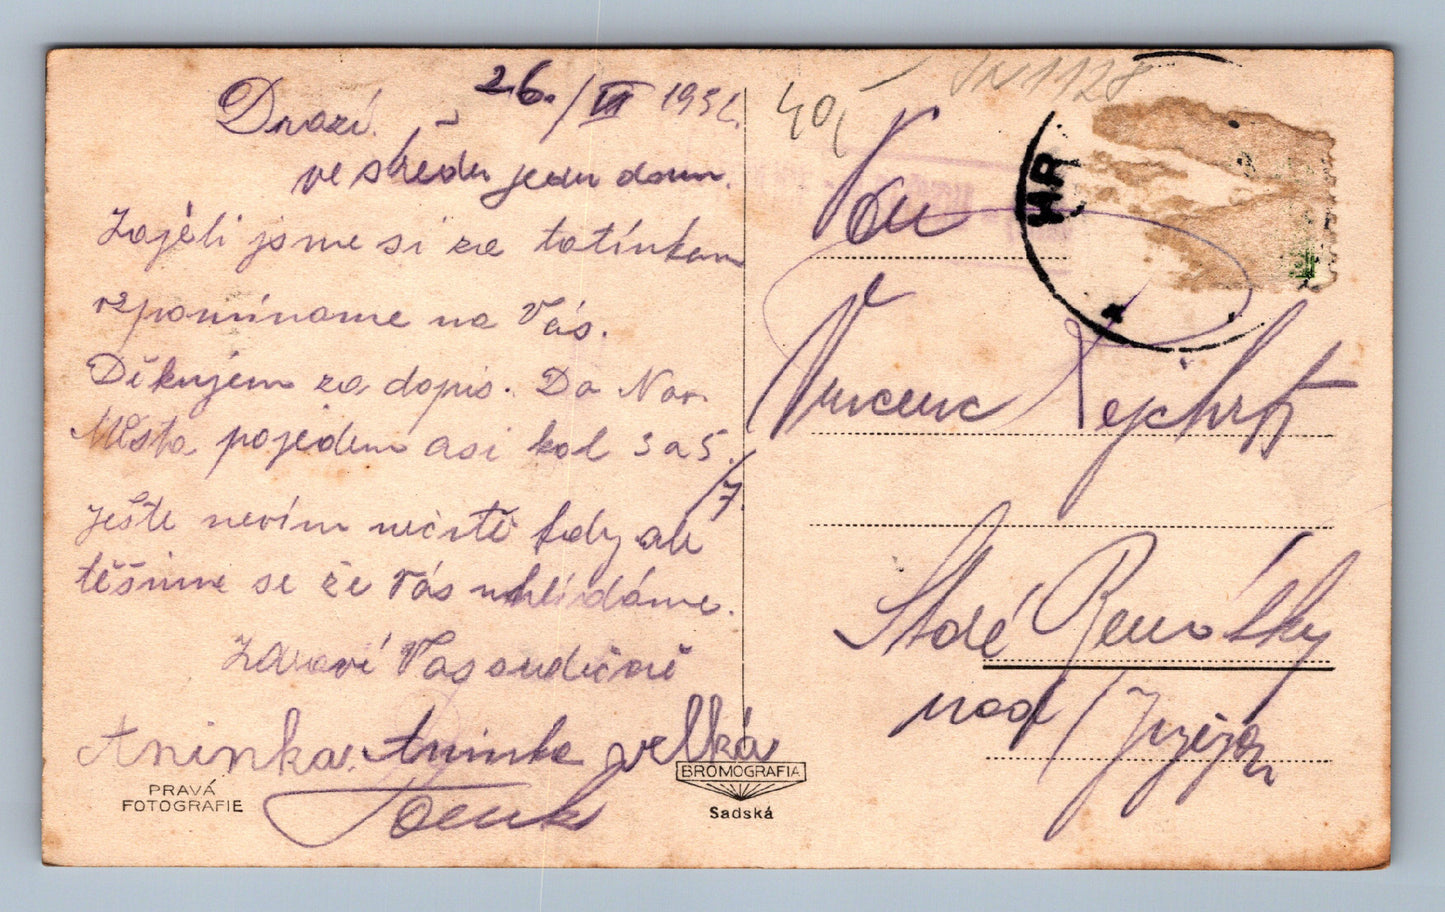 26./VI 193
Drazí.
ve středu jedu domu.
Zajeli jsme si za tatínkam
vzpomínáme na Vás.
Děkujem za dopis. Do Nov.
Města pojedem asi kol 3 a 5.
/7.
ještě nevím určitě kdy ale
těšíme se že Vás uhlídáme.
Zdraví Vás srdečně
Aninka. Aninka velká
PRAVÁ
FOTOGRAFIE
BROMOGRAFIA
Sadská
40,
JN1128
HR
Pan
Vincenc Rejchrt
Staré Benátky
nad Jizerou